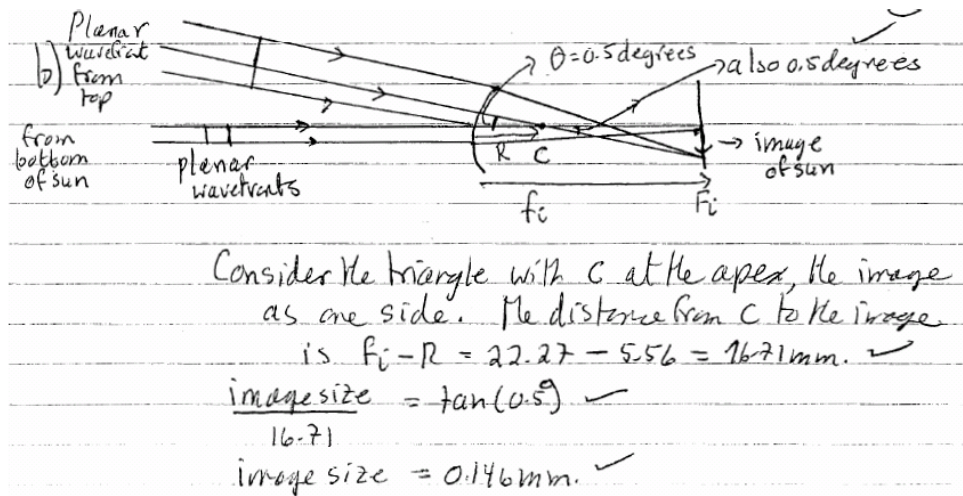 Planar
wavefront
b) from
top
θ=0.5 degrees
also 0.5 degrees
from
bottom
of sun
planar
wavefronts
R C
image
of sun
fi
Fi
Consider the triangle with C at the apex, the image
as one side. The distance from C to the image
is fi - R = 22.27 - 5.56 = 16.71mm. ✓
image size = tan(0.5°) ✓
16.71
image size = 0.146mm. ✓